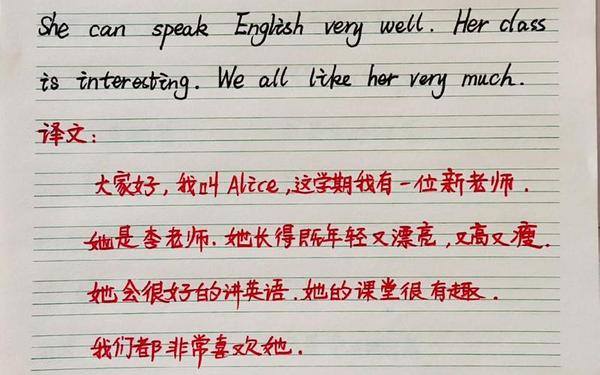 She can speak English very well. Her class
is interesting. We all like her very much.
译文：
大家好，我叫Alice，这学期我有一位新老师．
她是李老师．她长得既年轻又漂亮，又高又瘦．
她会很好的讲英语．她的课堂很有趣．
我们都非常喜欢她．